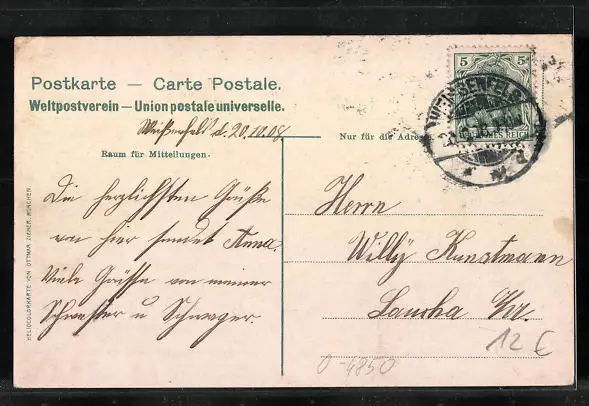 Postkarte — Carte Postale.
Weltpostverein — Union postale universelle.
Weißenfels d. 20.10.08
Nur für die Adresse
Raum für Mitteilungen.
Die herzlichsten Grüße
von hier sendet Anna.
Viele Grüsse von meiner
Schwester u Schwager.
Herrn
Willy Kunstmann
Laucha
12 €
0-4850
5 5
DEUTSCHES REICH
WEISSENFELS
HELIOCOLORKARTE VON OTTMAR ZIEHER, MÜNCHEN.